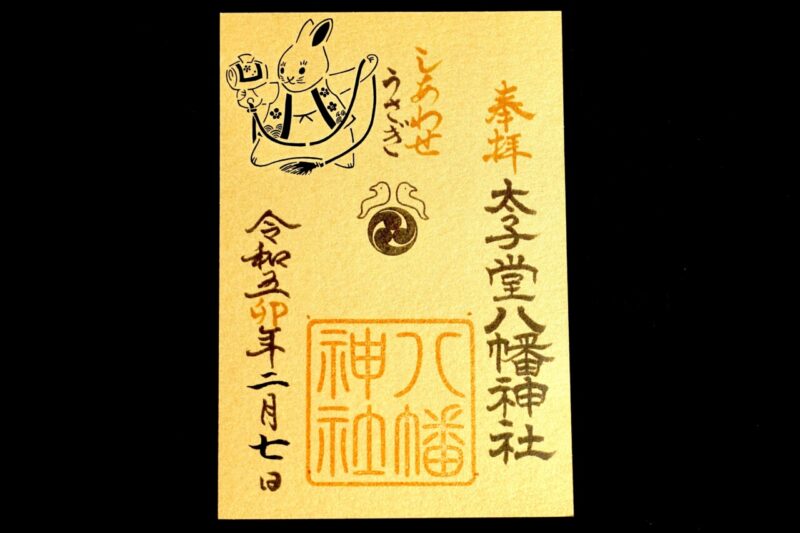 奉拝
太子堂八幡神社
しあわせ
うさぎ
八幡
神社
令和五卯年二月七日